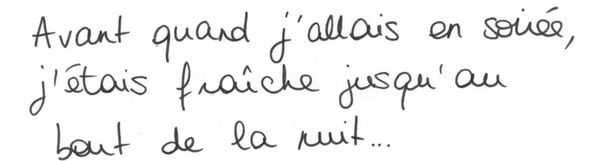 Avant quand j'allais en soirée,
j'étais fraîche jusqu'au
bout de la nuit...